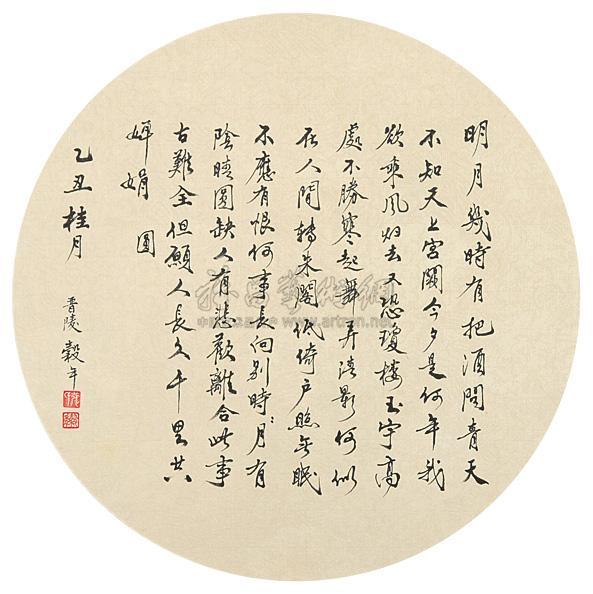 明月幾時有把酒問青天
不知天上宮闕今夕是何年我
欲乘風歸去又恐瓊樓玉宇高
處不勝寒起舞弄清影何似
在人間轉朱閣低倚戶照無眠
不應有恨何事長向別時月有
陰晴圓缺人有悲歡離合此事
古難全但願人長久千里共
嬋娟 圓
乙丑桂月
晉陵穀年
雅昌藝術網
www.artron.net